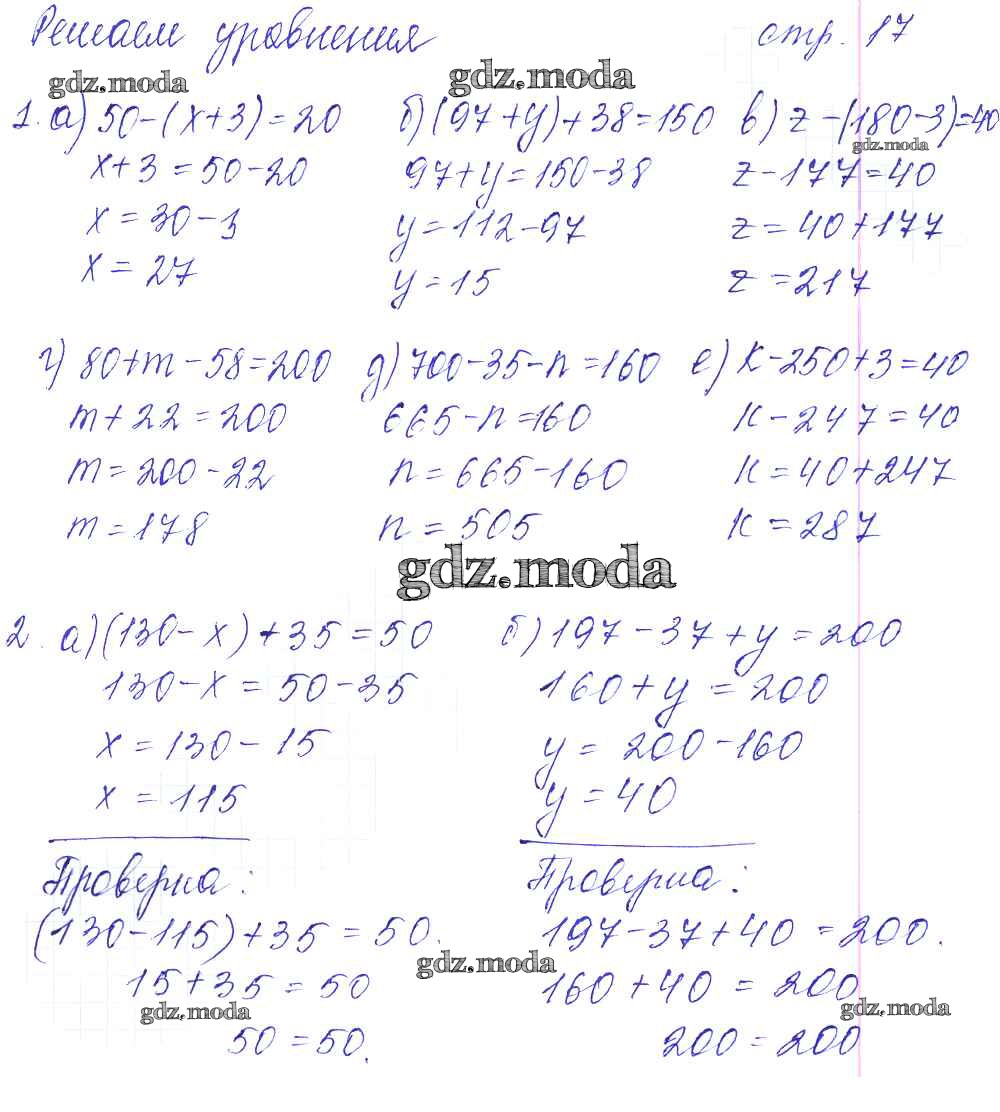 Решаем уравнения стр. 17
gdz.moda gdz.moda
1. а) 50-(x+3)=20 б) (97+y)+38=150 в) z-(180-3)=40
gdz.moda
x+3=50-20 97+y=150-38 z-177=40
x=30-3 y=112-97 z=40+177
x=27 y=15 z=217
г) 80+m-58=200 д) 700-35-n=160 е) k-250+3=40
m+22=200 665-n=160 k-247=40
m=200-22 n=665-160 k=40+247
m=178 n=505 k=287
gdz.moda
2. а) (130-x)+35=50 б) 197-37+y=200
130-x=50-35 160+y=200
x=130-15 y=200-160
x=115 y=40
Проверка: Проверка:
(130-115)+35=50. 197-37+40=200.
gdz.moda
15+35=50 160+40=200
gdz.moda gdz.moda
50=50. 200=200